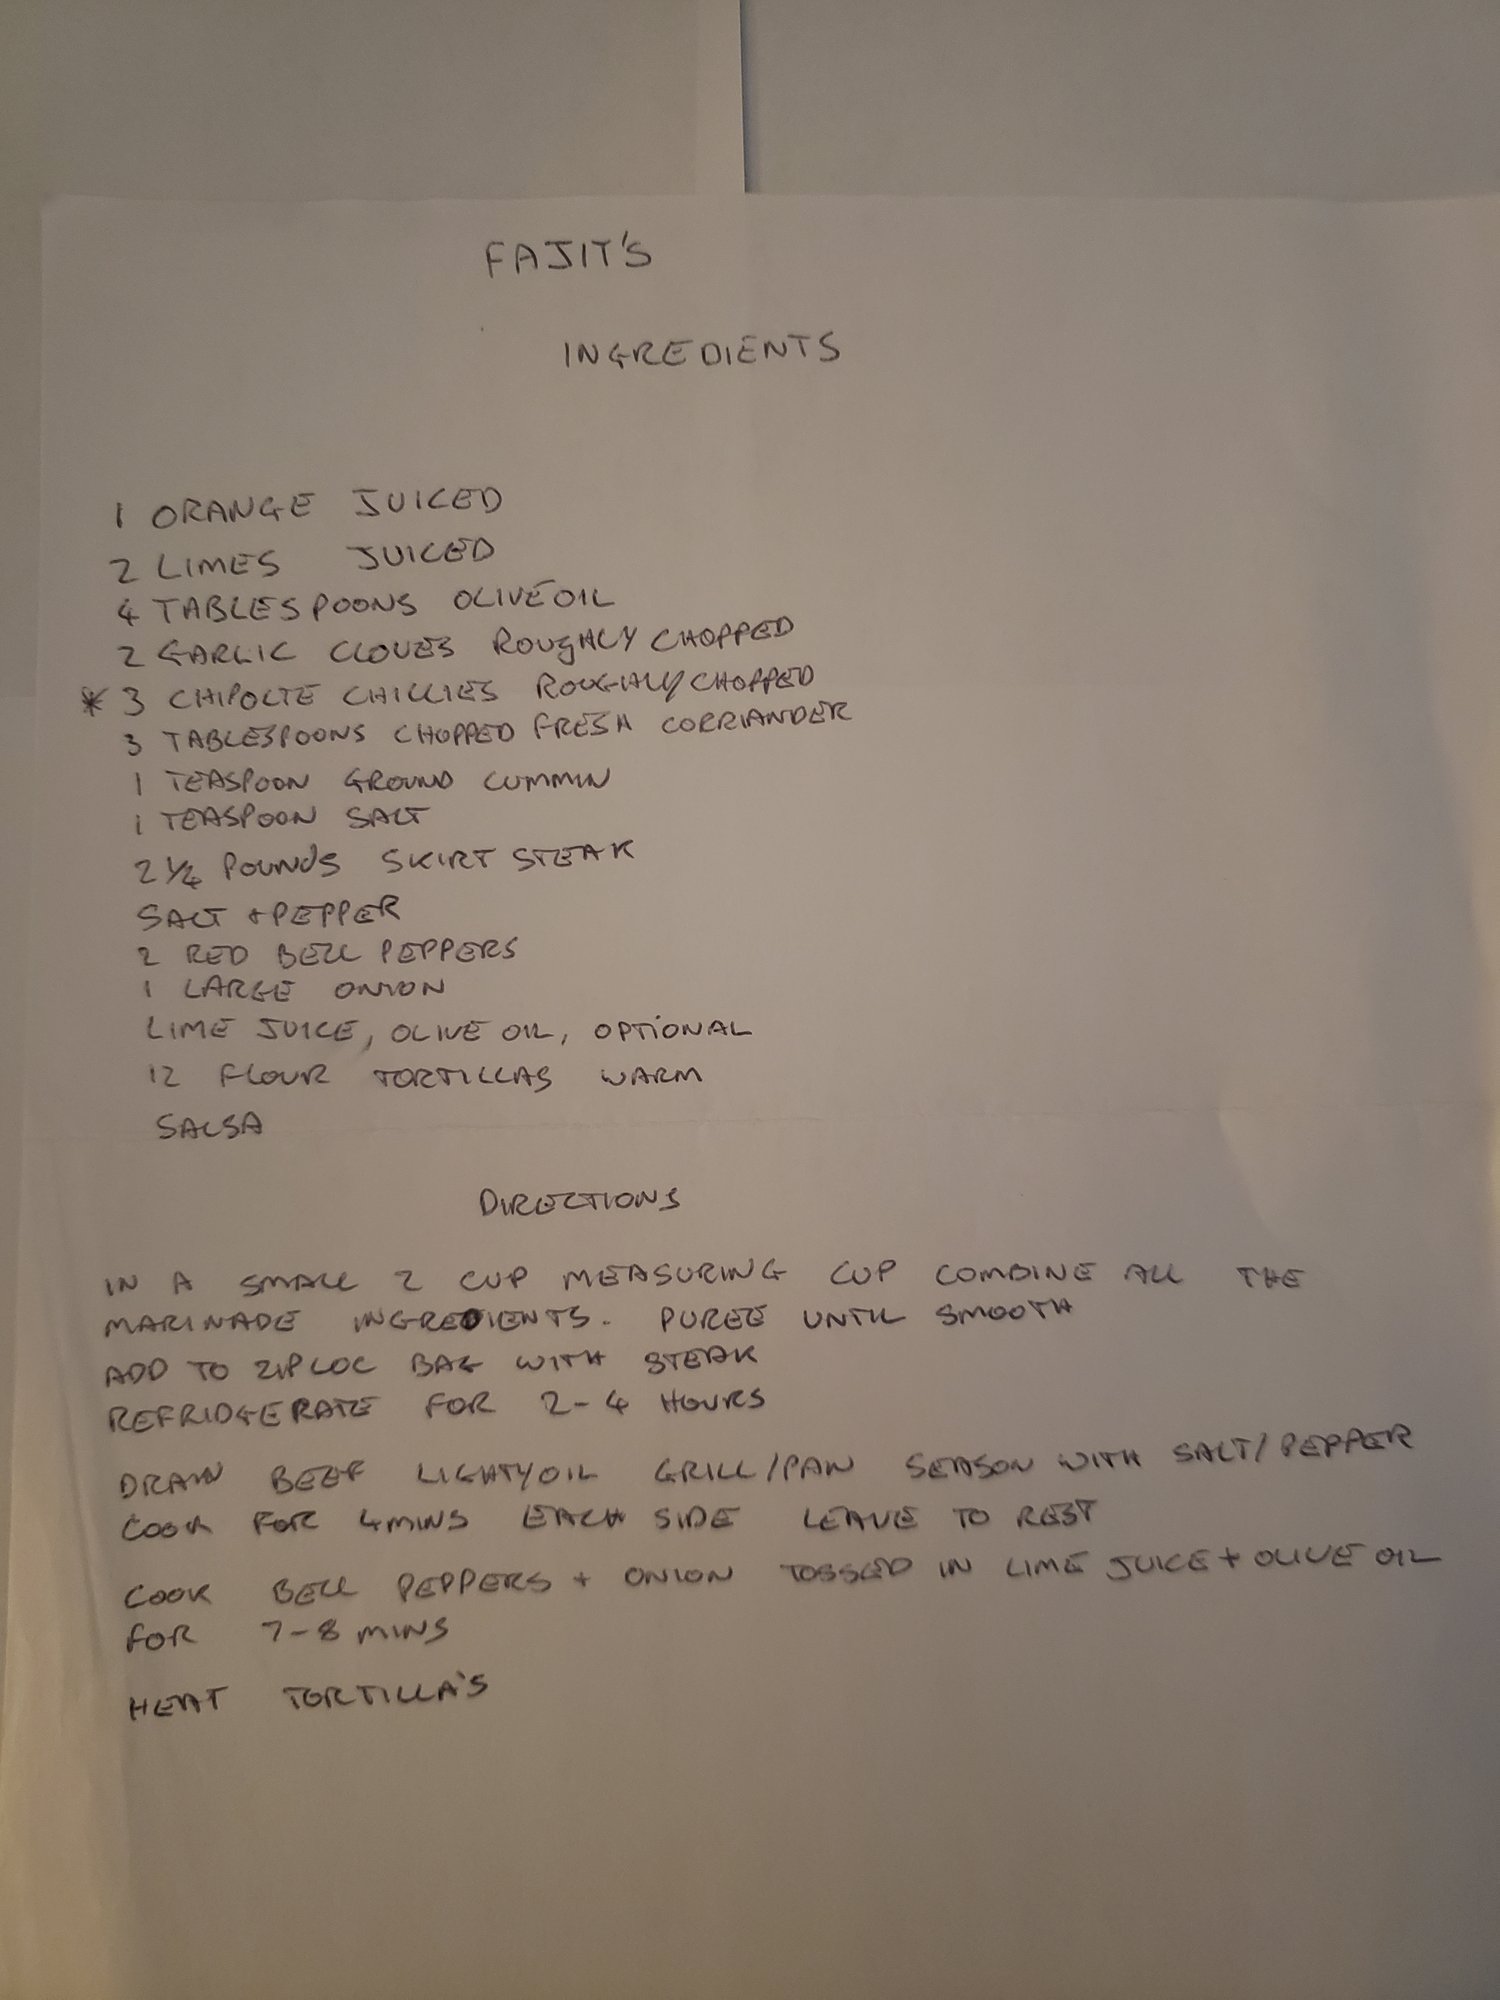 FAJIT'S
INGREDIENTS
1 ORANGE JUICED
2 LIMES JUICED
4 TABLESPOONS OLIVE OIL
2 GARLIC CLOVES ROUGHLY CHOPPED
* 3 CHIPOLTE CHILLIES ROUGHLY CHOPPED
3 TABLESPOONS CHOPPED FRESH CORRIANDER
1 TEASPOON GROUND CUMMIN
1 TEASPOON SALT
2 1/4 POUNDS SKIRT STEAK
SALT + PEPPER
2 RED BELL PEPPERS
1 LARGE ONION
LIME JUICE, OLIVE OIL, OPTIONAL
12 FLOUR TORTILLAS WARM
SALSA
DIRECTIONS
IN A SMALL 2 CUP MEASURING CUP COMBINE ALL THE
MARINADE INGREDIENTS. PUREE UNTIL SMOOTH
ADD TO ZIPLOC BAG WITH STEAK
REFRIDGERATE FOR 2-4 HOURS
DRAIN BEEF LIGHTY OIL GRILL/PAN SEASON WITH SALT/PEPPER
COOK FOR 4 MINS EACH SIDE LEAVE TO REST
COOK BELL PEPPERS + ONION TOSSED IN LIME JUICE + OLIVE OIL
FOR 7-8 MINS
HEAT TORTILLA'S